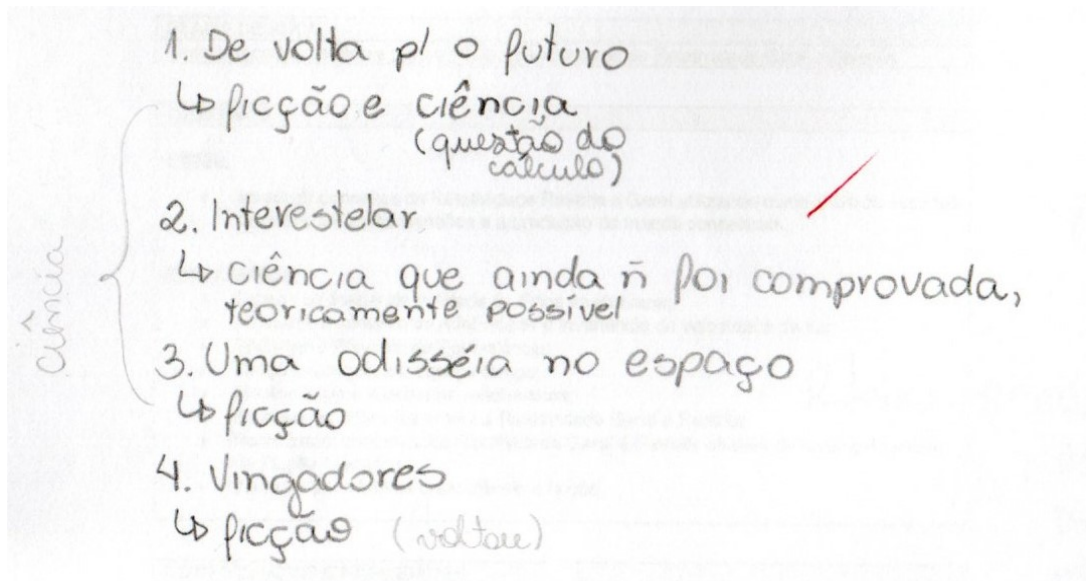 1. De volta p/ o futuro
↳ ficção e ciência
(questão do
cálculo)
2. Interestelar
↳ ciência que ainda ñ foi comprovada,
teoricamente possível
3. Uma odisséia no espaço
↳ ficção
4. Vingadores
↳ ficção (voltou)
ciência